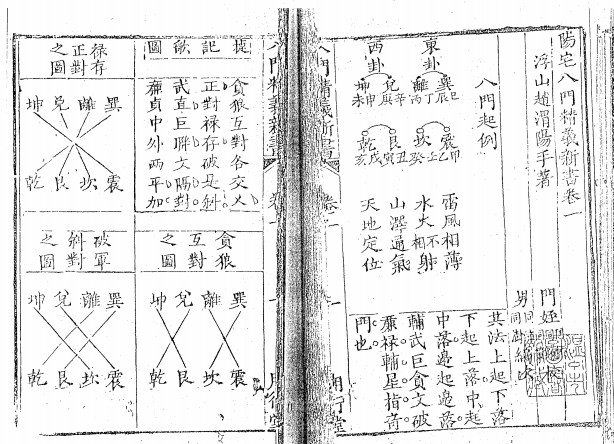 陽宅八門精義新書卷一
浮山趙渭陽手著
門姪
男
八門起例
東卦
巽巳
離丙丁
震甲乙
坎壬癸
西卦
兌庚辛
坤未申
艮丑寅
乾戌亥
雷風相薄
水火不相射
山澤通氣
天地定位
其法上起下落
下起上落中起
中落邊起邊落
輔武巨貪文破
廉禄輔星指
門也
八門精義新書
卷一
一
八門精義新書
卷一
一
捷記歌圖
貪狼互對各交乂
正對禄存破是斜
武直巨聯文隔對
廉貞中外兩平加
貪狼互對之圖
巽離兌坤
震坎艮乾
禄存正對之圖
巽離兌坤
震坎艮乾
破軍斜對之圖
巽離兌坤
震坎艮乾